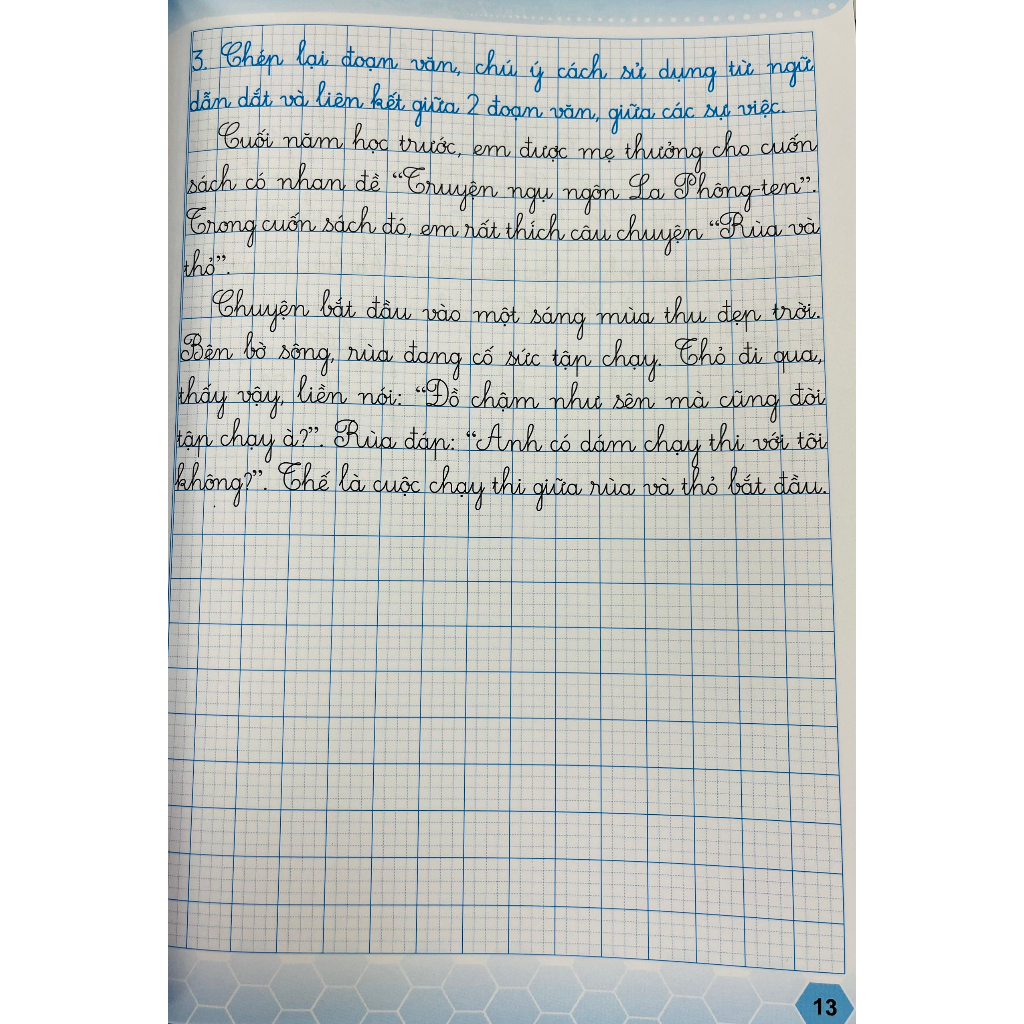 3. Chép lại đoạn văn, chú ý cách sử dụng từ ngữ
dẫn dắt và liên kết giữa 2 đoạn văn, giữa các sự việc.
Cuối năm học trước, em được mẹ thưởng cho cuốn
sách có nhan đề “Truyện ngụ ngôn La Phông-ten”.
Trong cuốn sách đó, em rất thích câu chuyện “Rùa và
thỏ”.
Chuyện bắt đầu vào một sáng mùa thu đẹp trời.
Bên bờ sông, rùa đang cố sức tập chạy. Thỏ đi qua,
thấy vậy, liền nói: “Đồ chậm như sên mà cũng đòi
tập chạy à?”. Rùa đáp: “Anh có dám chạy thi với tôi
không?”. Thế là cuộc chạy thi giữa rùa và thỏ bắt đầu.
13